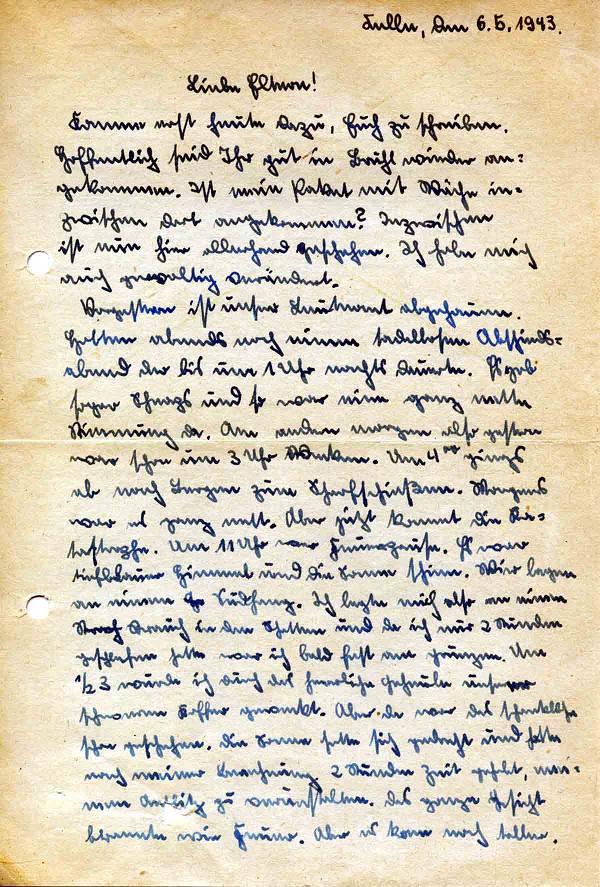 Fulle, den 6.5.1943.
Liebe Eltern!
Komme erst heute dazu, Euch zu schreiben.
Hoffentlich seid Ihr gut in Brühl wieder an-
gekommen. Ist mein Paket mit Wäsche in-
zwischen dort angekommen? Inzwischen
ist nun hier allerhand geschehen. Ich habe mich
auch gewaltig verändert.
Vorgestern ist unser Leutnant abgehauen.
Hatten abends noch einen tadellosen Abschieds-
abend der bis um 1 Uhr nachts dauerte. Es gab
sogar Schnaps und so war eine ganz nette
Stimmung da. Am andern morgen also gestern
war schon um 3 Uhr Wecken. Um 4 gings
ab nach Bergen zum Scharfschießen. Morgens
war es ganz nett. Aber jetzt kommt die Ka-
tastrophe. Um 11 Uhr war Feuerpause. Es war
tiefblauer Himmel und die Sonne schien. Wir lagen
an einem Südhang. Ich legte mich also an einen
Strauch in den Schatten und da ich nur 2 Stunden
geschlafen hatte war ich bald fest am grunzen. Um
1/2 3 wurde ich durch das herrliche Geheule unserer
schweren Koffer geweckt. Aber da war das schreckliche
schon geschehen. Die Sonne hatte sich gedreht und hatte
nach meiner Berechnung 2 Stunden Zeit gehabt, mei-
nem Antlitz zu verunstalten. Das ganze Gesicht
brannte wie Feuer. Aber es kam noch toller.